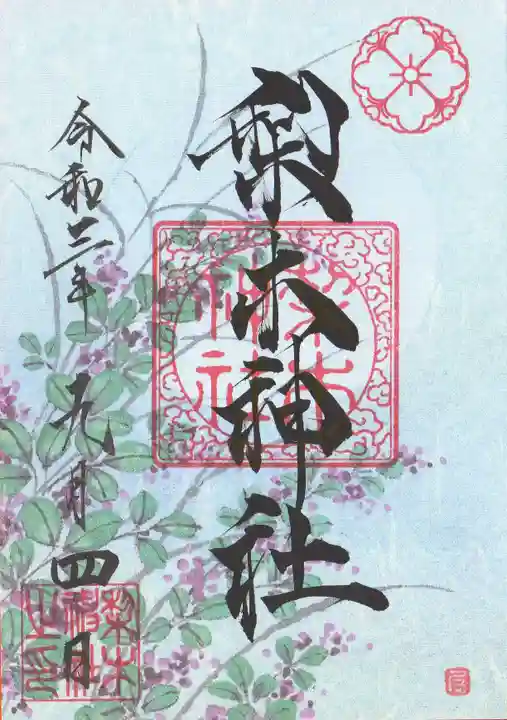 梨木神社
令和三年
九月四日
梨木
神社
梨木
神社
之印